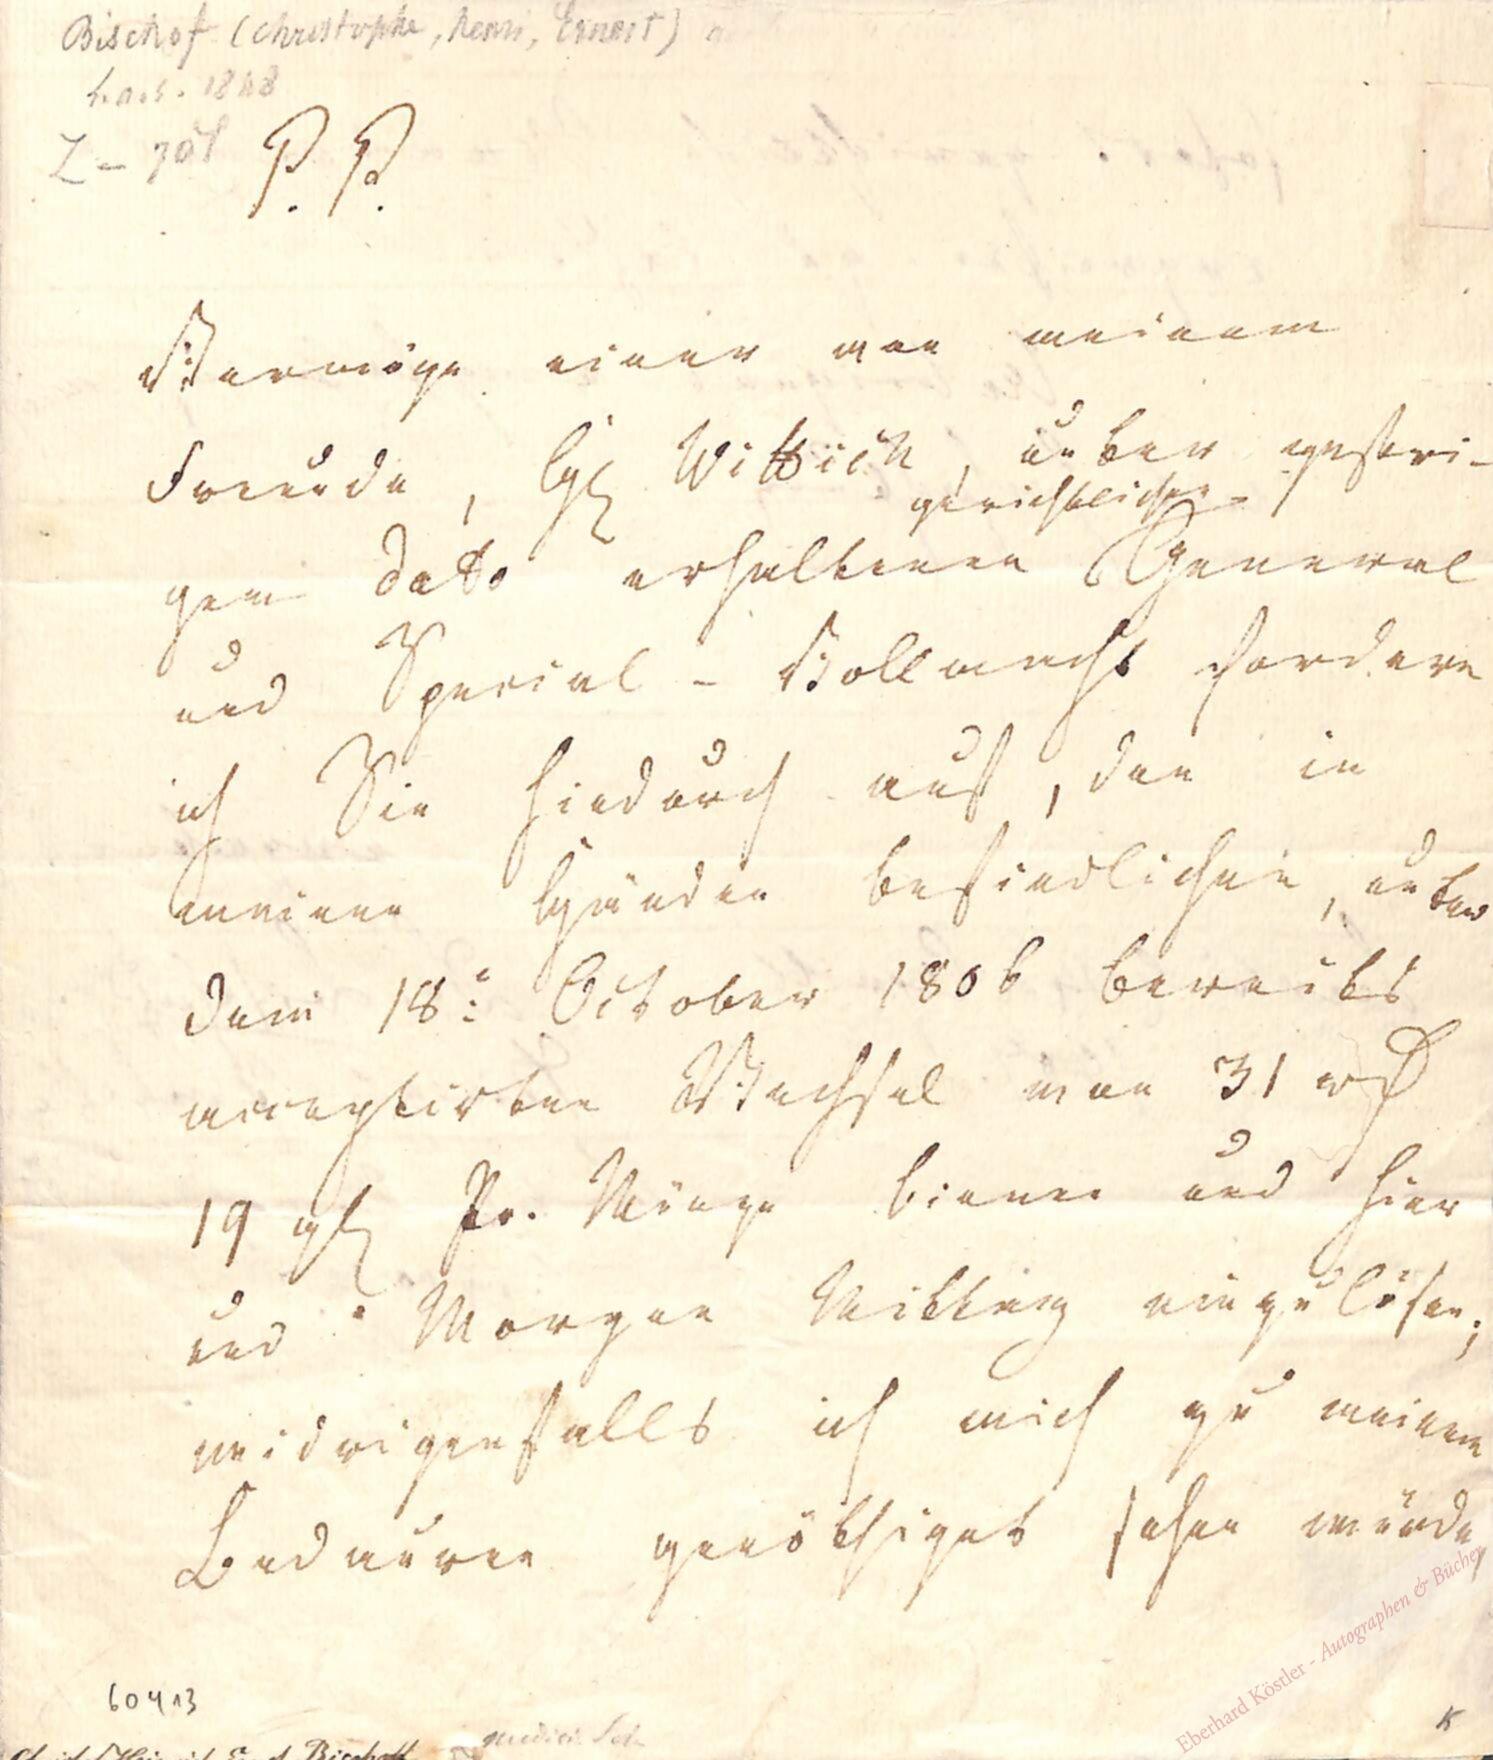 Bischof (Christophe, Henri, Ernest)
L.a.s. 1848
P. P.
Vermöge einer von meinem
Freunde, H Wittich, unter gestri-
gerichtlichen
gem dato erhaltenen General
und Special-Vollmacht fordere
ich Sie hiedurch auf, den in
meinen Händen befindlichen, unter
dem 18: October 1806 bereits
acceptirten Wechsel von 31 rh
19 gl Pr. Münze binnen und hier
und Morgen Mittag einzulösen;
widrigenfalls ich mich zu meinem
Bedauren genöthiget sehen würde,
60413
Eberhard Köstler - Autographen & Bücher
K